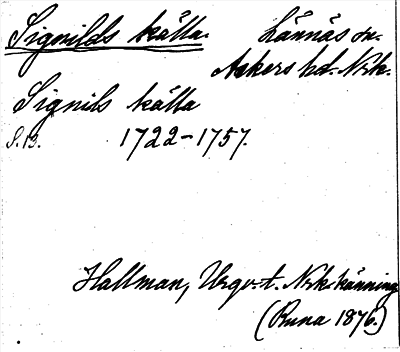 Signilds källa. Lännäs sn.
Askers hd. Nrk.
Signils källa
S. 13. 1722-1757.
Hallman, Urgv. t. Nrks känning
(Runa 1876.)